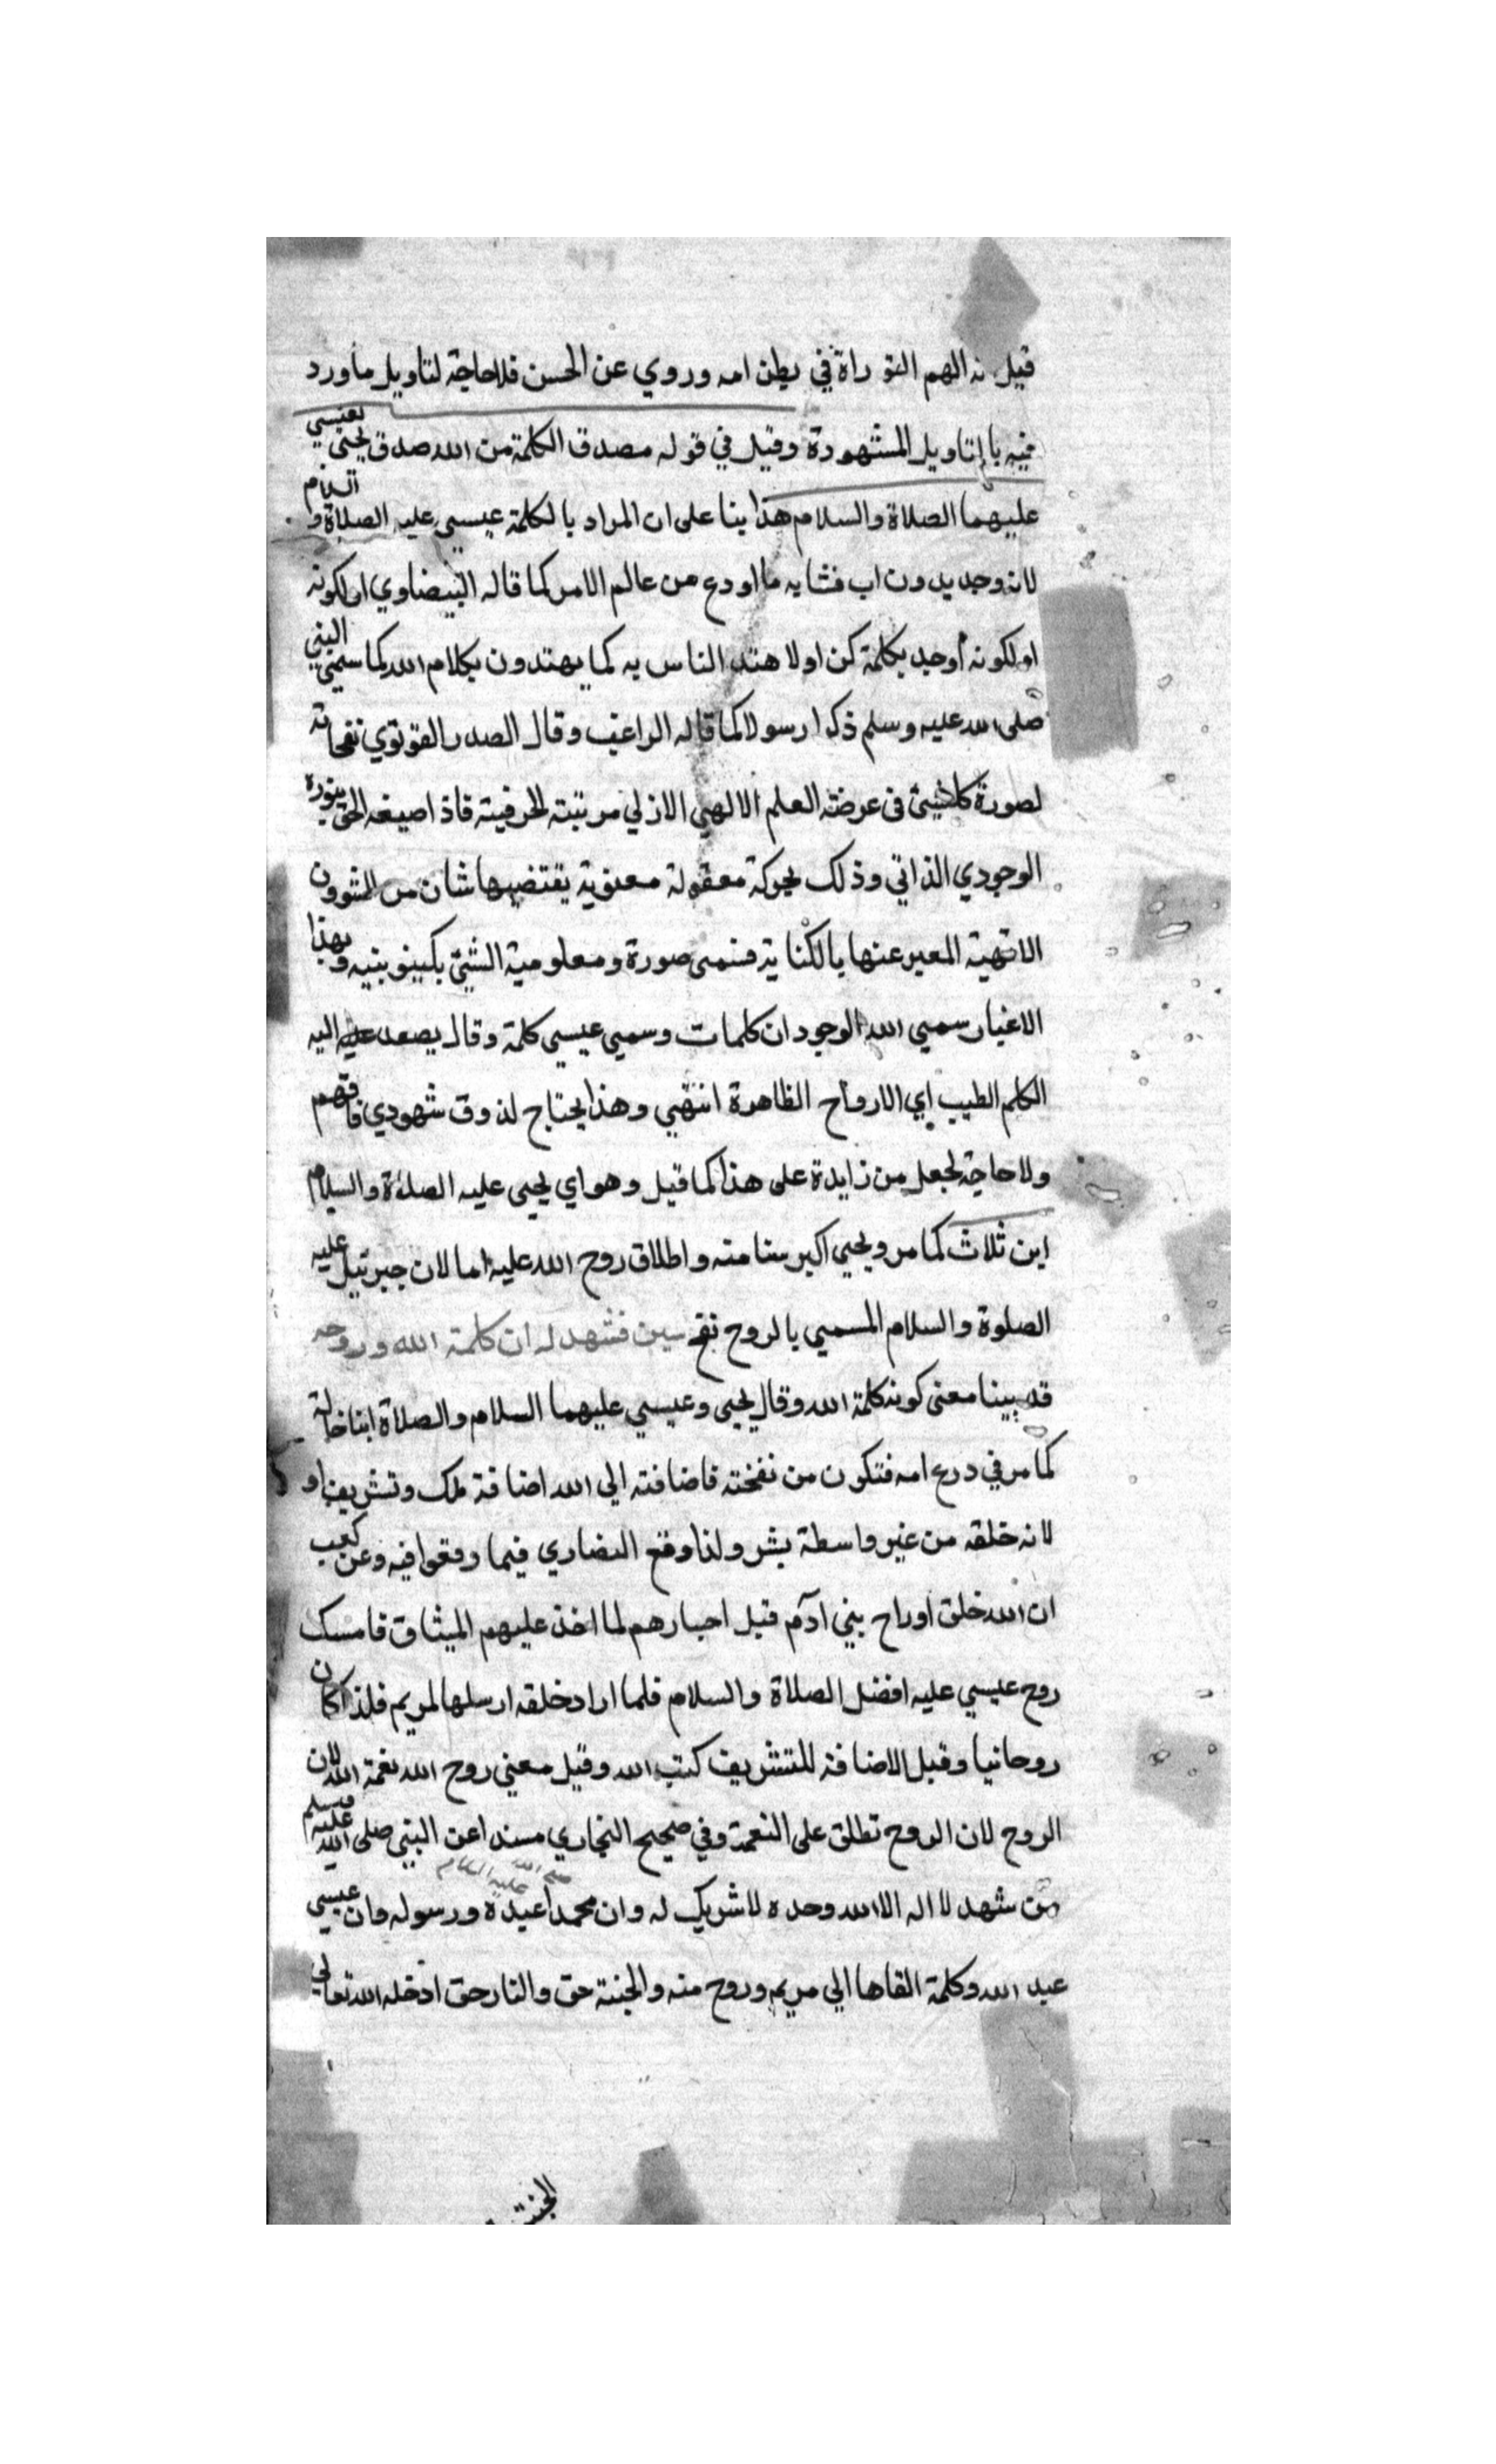 قيل نه الهم التوراة في بطن امه وروي عن الحسن فلاحاجة لتاويل ماورد
فيه بالتاويل المشهورة وقيل في قوله مصدقا الكلمة من الله صدق يحيى بعيسي
عليهما الصلاة والسلام هذا بنا على ان المراد بالكلمة عيسي عليه الصلاة والسلام
لانه وجد بدون اب فشابه ما اودع من عالم الامر كما قاله البيضاوي اولكونه
اولكونه أوجد بكلمة كن اولا هتد الناس به كما يهتدون بكلام الله كما سمي النبي
صلى الله عليه وسلم ذكرا رسولا كما قاله الراغب وقال الصدر القونوي نفحاته
لصورة كلشيئ في عرضة العلم الالهي الازلي مرتبته الحرفية فاذا صبغه الحق بنوره
الوجودي الذاتي وذلك بحركة معقولة معنوية يقتضيها شان من الشوون
الالهية المعبر عنها بالكنا ية فنسمى صورة ومعلومية الشيئ بكينونيته وبهذا
الاعتبار سمي الله الوجود ان كلمات وسمي عيسي كلمة وقال يصعد عليه اليه
الكلم الطيب اي الارواح الظاهرة انتهي وهذا يحتاج لذوق شهودي فافهم
ولا حاجة لجعل من زايدة على هذا كما قيل وهواي يحيى عليه الصلاة والسلام
ابن ثلاث كما مر ويحيي اكبر سنا منه واطلاق روح الله عليه اما لان جبرئيل عليه
الصلوة والسلام المسمي بالروح نفخ سين فشهد له ان كلمة الله وروحه
قد بينا معنى كونه كلمة الله وقال يحيى وعيسي عليهما السلام والصلاة ابنا خالة
كما مر في درع امه فتكون من نفخته فاضافته الي الله اضافة ملك وتشريف او
لانه خلقه من غير واسطة بشر ولذا وقع النصاري فيما وقعوا فيه وعن كعب
ان الله خلق اوراح بني ادم قبل احبارهم لما اخذ عليهم الميثاق فامسك
روح عيسي عليه افضل الصلاة والسلام فلما اراد خلقه ارسلها لمريم فلذا كان
روحانيا وقبل الاضافة للتشريف كتب الله وقيل معني روح الله نعمة الله لان
الروح لان الروح تطلق على النعمة وفي صحيح البخاري مسندا عن النبي صلى الله عليه وسلم
من شهد لا اله الا الله وحده لا شريك له وان محمدا عبده ورسوله وان عيسي صلى الله عليه السلام
عبد الله وكلمة القاها الي مريم وروح منه والجنة حق والنار حق ادخله الله تعالي
الجنة